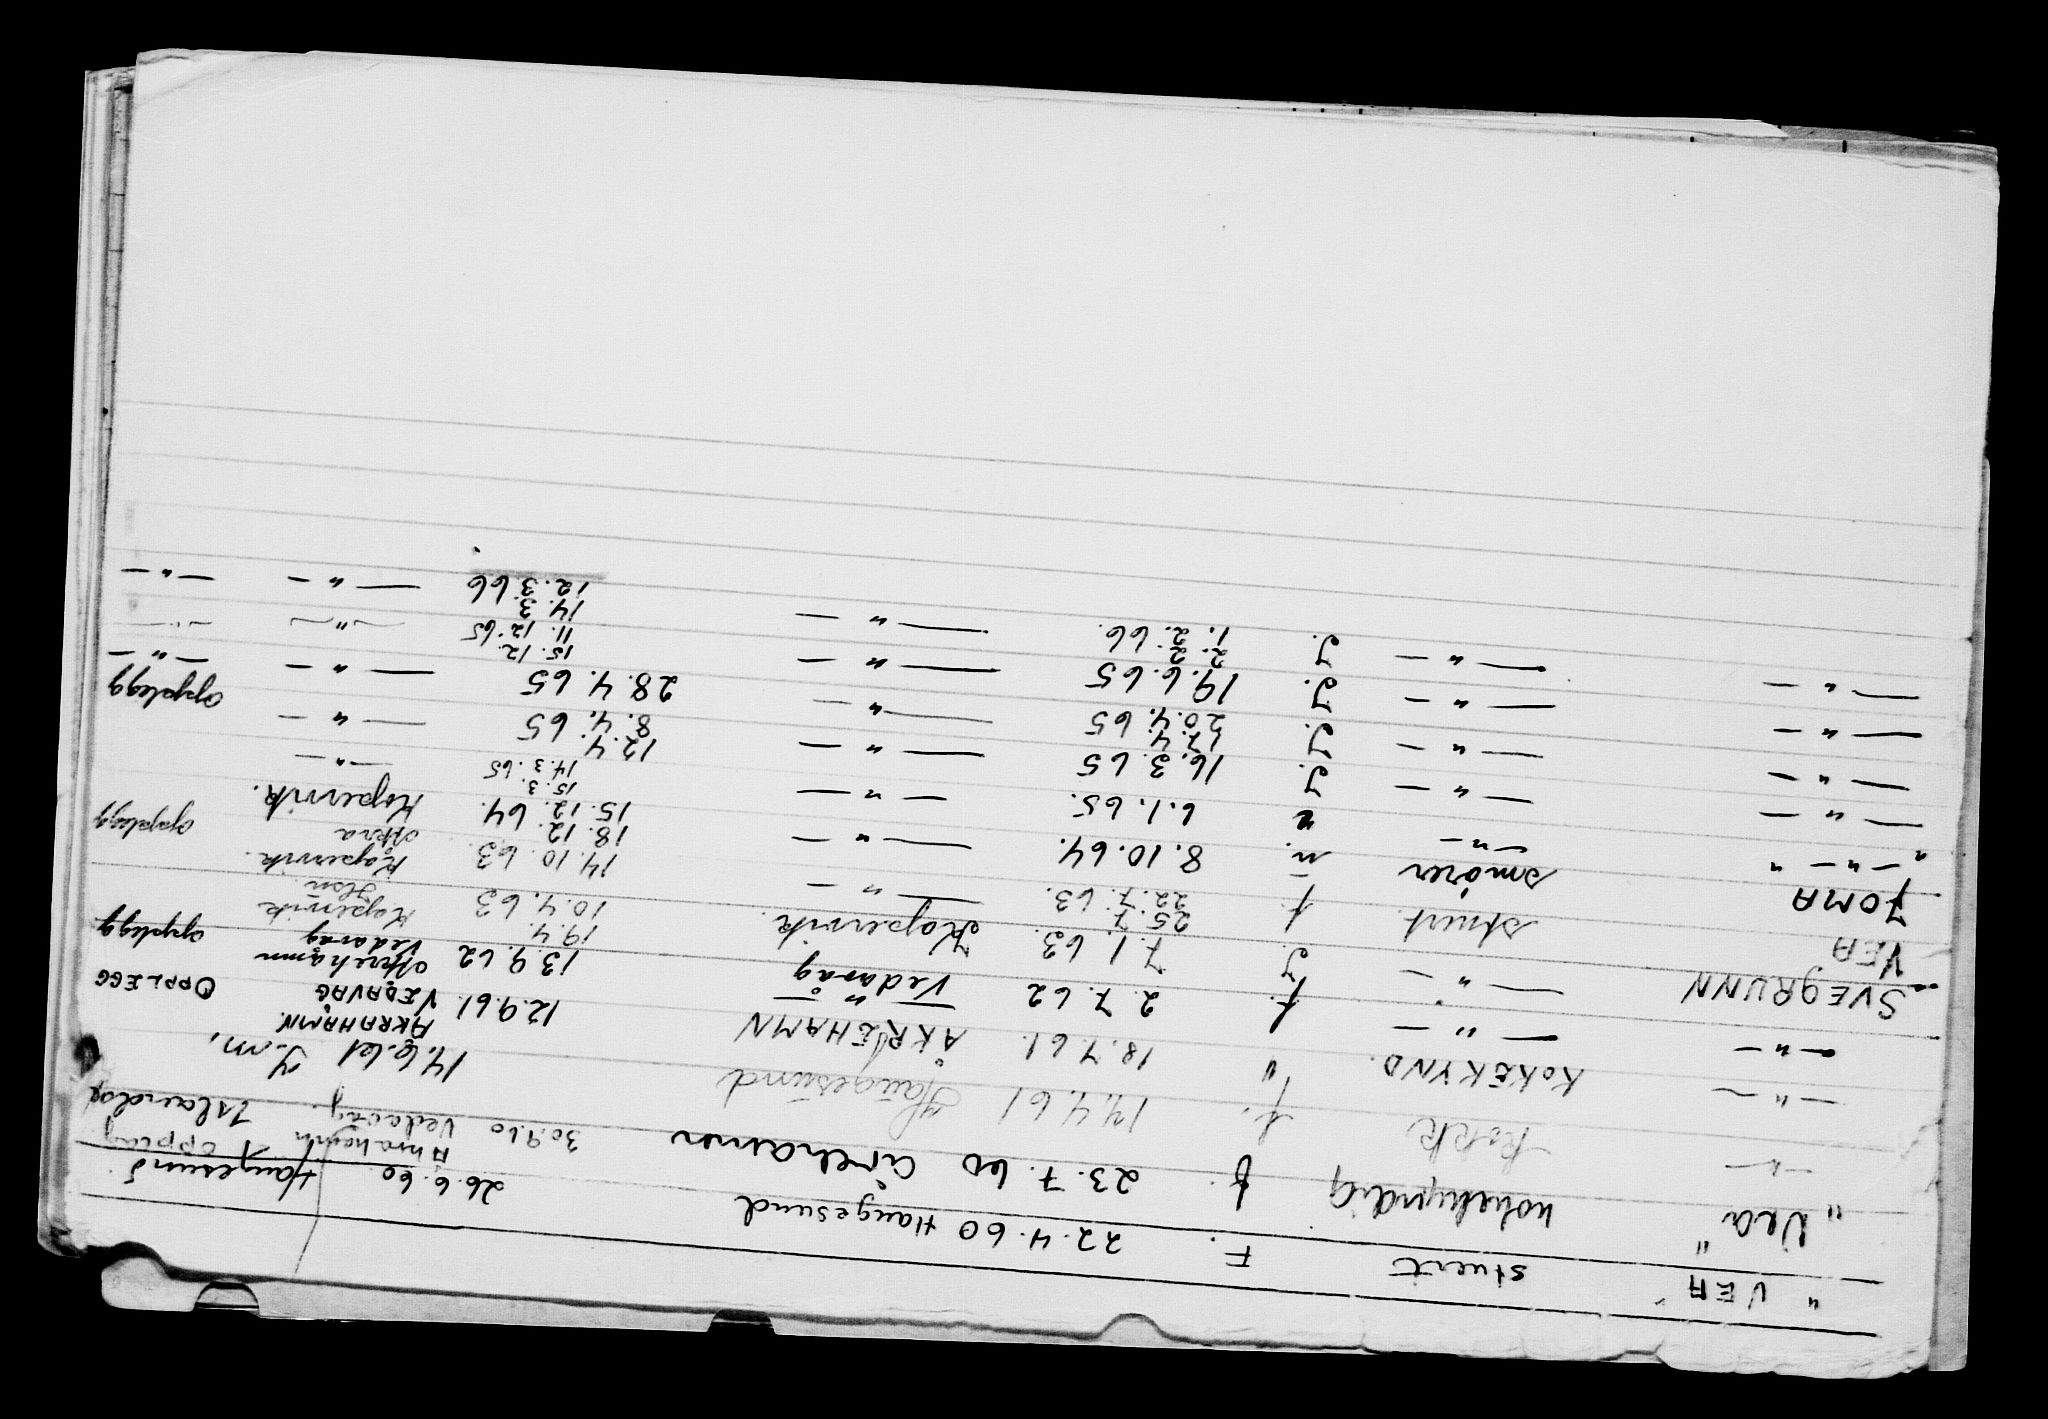 " VEA " stuert F. 22.4.60 Haugesund 26.6.60 Haugesund
" Vea " kokekyndig f. 23.7.60 Åkrehamn 30.9.60 Åkrahamn Vedavåg. opplag Islandog
— " — kokk f. 14.4.61 Haugesund 14.6.61 S.m.
— " — KOKEKYND. " 18.7.61. ÅKREHAMN 12.9.61. ÅKRAHAMN. VEDAVÅG OPPLEGG
— " — — " — f. 2.7.62 Vedavåg 13.9.62 Åkrehamn Vedavåg opplegg
SVEGRUNN — " — 7.1.63. Kopervik. 19.4. 10.4.63 Kopervik
VEA stuert. f. 25.7. 22.7.63. — " — 14.10.63. Kopervik.
JOMA smører n. 8.10.64. — " — 18.12. 15.12.64. Åkra Kopervik. opplegg
" — " — " — " — " 6.1.65. — " — 15.3. 14.3.65 — " —
— " — — " — 16.3.65 — " — 12.4. 8.4.65 — " —
— " — — " — 20.4.65 — " — 28.4.65 — " — opplegg
— " — — " — 19.6.65 — " — 15.12. 11.12.65 — " — — " —
— " — — " — 2.2. 1.2.66. — " — 14.3. 12.3.66 — " — — " —